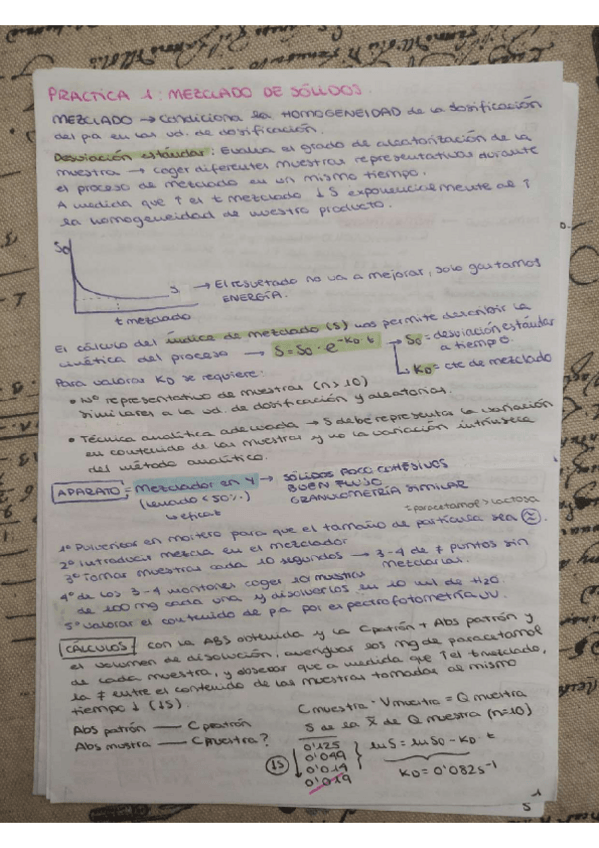 PRACTICA 1: MEZCLADO DE SÓLIDOS.
MEZCLADO → Condiciona la HOMOGENEIDAD de la dosificación
del pa en las ud. de dosificación.
Desviación estándar: Evalua el grado de aleatorización de la
muestra → coger diferentes muestras representativas durante
el proceso de mezclado en un mismo tiempo.
A medida que ↑ el t mezclado ↓ S exponencialmente al ↑
la homogeneidad de nuestro producto.
So
S. → El resultado no va a mejorar, solo gastamos
ENERGÍA.
t mezclado
El cálculo del índice de mezclado (S) nos permite describir la
cinética del proceso → S = So · e^-KD·t → So = desviación estándar
a tiempo.
KD = cte de mezclado
Para valorar KD se requiere:
• Nº representativo de muestras (n>10)
similares a la ud. de dosificación y aleatorias.
• Técnica analítica adecuada → S debe representar la variación
en contenido de las muestras y no la variación intrínseca
del método analítico.
APARATO = Mezclador en Y → SÓLIDOS POCO COHESIVOS
(llenado <50%) BUEN FLUJO
↳ eficaz GRANULOMETRÍA SIMILAR
= paracetamol > lactosa
1º Pulverizar en mortero para que el tamaño de partícula sea ≈.
2º Introducir mezcla en el mezclador
3º Tomar muestras cada 10 segundos → 3-4 de ≠ puntos sin
mezclarlas.
4º de los 3-4 montones coger 10 muestras
de 100 mg cada una y disolverlos en 10 ml de H2O.
5º Valorar el contenido de pa por espectrofotometría UV.
CÁLCULOS con la ABS obtenida y la Cpatrón + Abs patrón y
el volumen de disolución, averiguar los mg de paracetamol
de cada muestra, y observar que a medida que ↑ el t mezclado,
la ≠ entre el contenido de las muestras tomadas al mismo
tiempo ↓ (↓S).
Abs patrón — Cpatrón
Abs muestra — Cmuestra?
Cmuestra · Vmuestra = Q muestra
S de la x̄ de Q muestra (n=10)
↓S
0'125
0'049
0'014
0'019
lnS = lnSo - KD · t
KD = 0'082s⁻¹
1
S